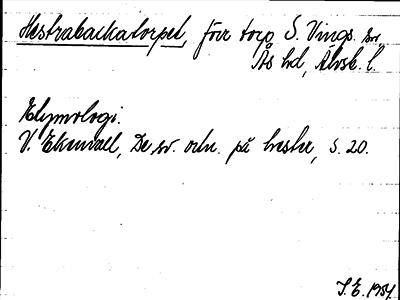 Hestrabackatorpet, förr torp, S. Vings sn,
Ås hd, Älvsb. l.
Etymologi.
V. Ekenvall, De sv. ortn. på hester, s. 20.
J. E. 1954